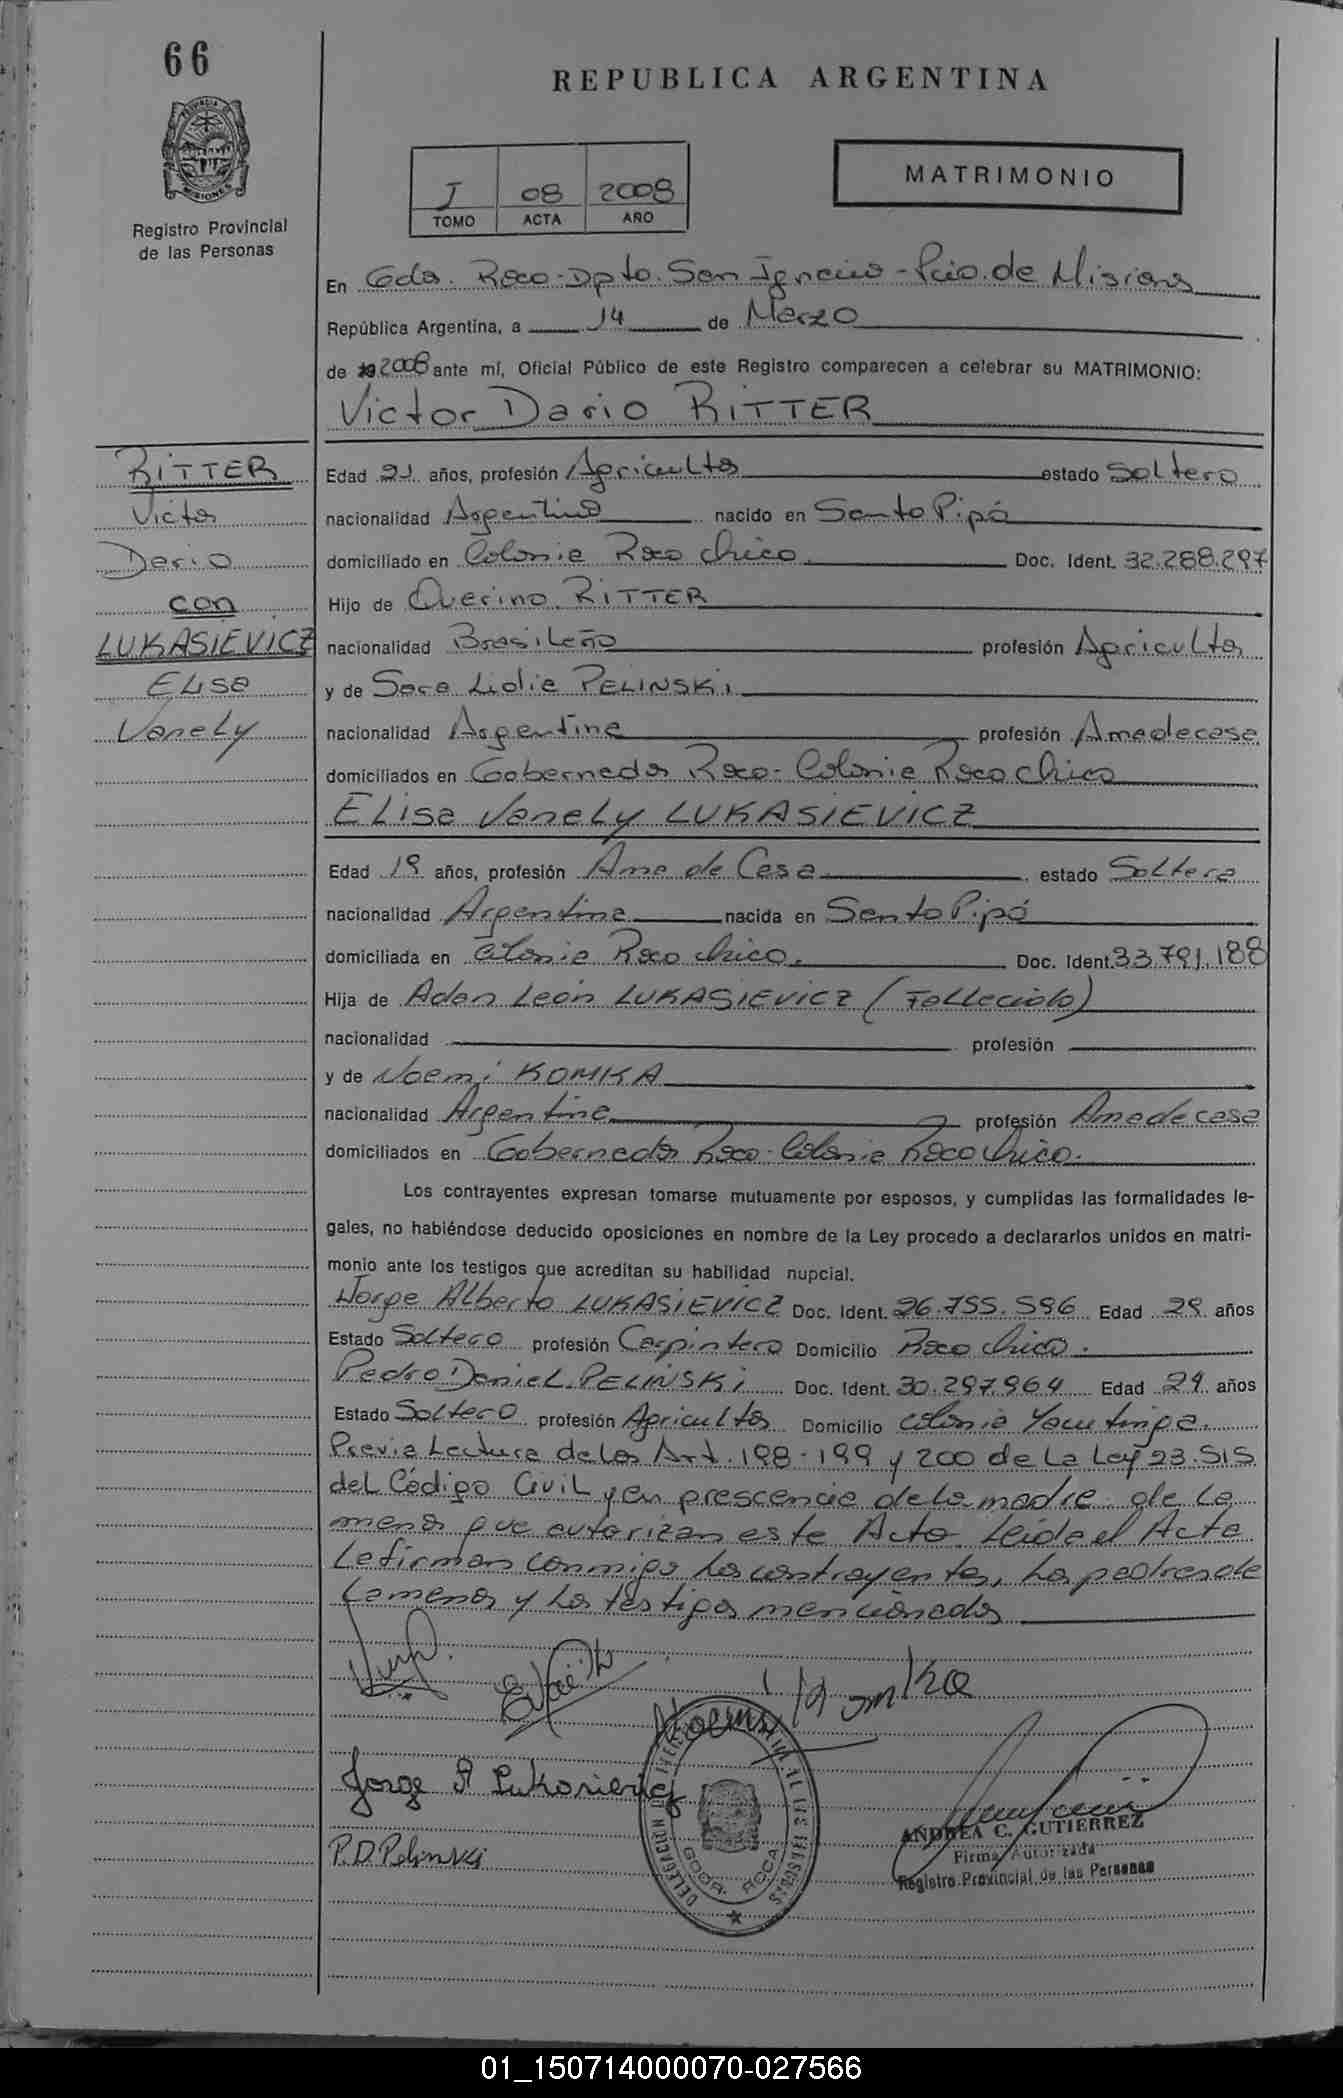 66
REPUBLICA ARGENTINA
PROVINCIA DE MISIONES
Registro Provincial
de las Personas
I 08 2008
TOMO ACTA AÑO
MATRIMONIO
En Gdor. Roca - Dpto. San Ignacio - Pcio. de Misiones
República Argentina, a 14 de Marzo
de 2008 ante mí, Oficial Público de este Registro comparecen a celebrar su MATRIMONIO:
Victor Dario RITTER
RITTER
Victor
Dario
con
LUKASIEVICZ
Elisa
Vanely
Edad 21 años, profesión Agricultor estado Soltero
nacionalidad Argentino nacido en Santo Pipó
domiciliado en Colonia Roca Chica Doc. Ident. 32.288.297
Hijo de Querino RITTER
nacionalidad Brasileño profesión Agricultor
y de Sara Lidia PELINSKI
nacionalidad Argentina profesión Amadecasa
domiciliados en Gobernador Roca - Colonia Roca Chica
Elisa Vanely LUKASIEVICZ
Edad 19 años, profesión Ama de Casa estado Soltera
nacionalidad Argentina nacida en Santo Pipó
domiciliada en Colonia Roca Chica. Doc. Ident. 33.791.188
Hija de Adan León LUKASIEVICZ (Fallecido)
nacionalidad profesión
y de Noemi KOMKA
nacionalidad Argentina profesión Amadecasa
domiciliados en Gobernador Roca - Colonia Roca Chica.
Los contrayentes expresan tomarse mutuamente por esposos, y cumplidas las formalidades le-
gales, no habiéndose deducido oposiciones en nombre de la Ley procedo a declararlos unidos en matri-
monio ante los testigos que acreditan su habilidad nupcial.
Jorge Alberto LUKASIEVICZ Doc. Ident. 26.755.596 Edad 29 años
Estado Soltero profesión Carpintero Domicilio Roca Chica.
Pedro Daniel PELINSKI Doc. Ident. 30.297.964 Edad 24 años
Estado Soltero profesión Agricultor Domicilio Colonia Yacutinga.
Previa Lectura de los Art. 198 - 199 y 200 de la Ley 23.515
del Código Civil y en prescencia de la madre de la
menor que autorizan este Acto. Leida el Acta
la firman conmigo los contrayentes, los padres de
la menor y los testigos mencionados
Noemi Komka
Jorge A Lukasievicz
P.D.Pelinski
DELEGACION
GDOR. ROCA
ANDREA C. GUTIERREZ
Firma Autorizada
Registro Provincial de las Personas
01_150714000070-027566